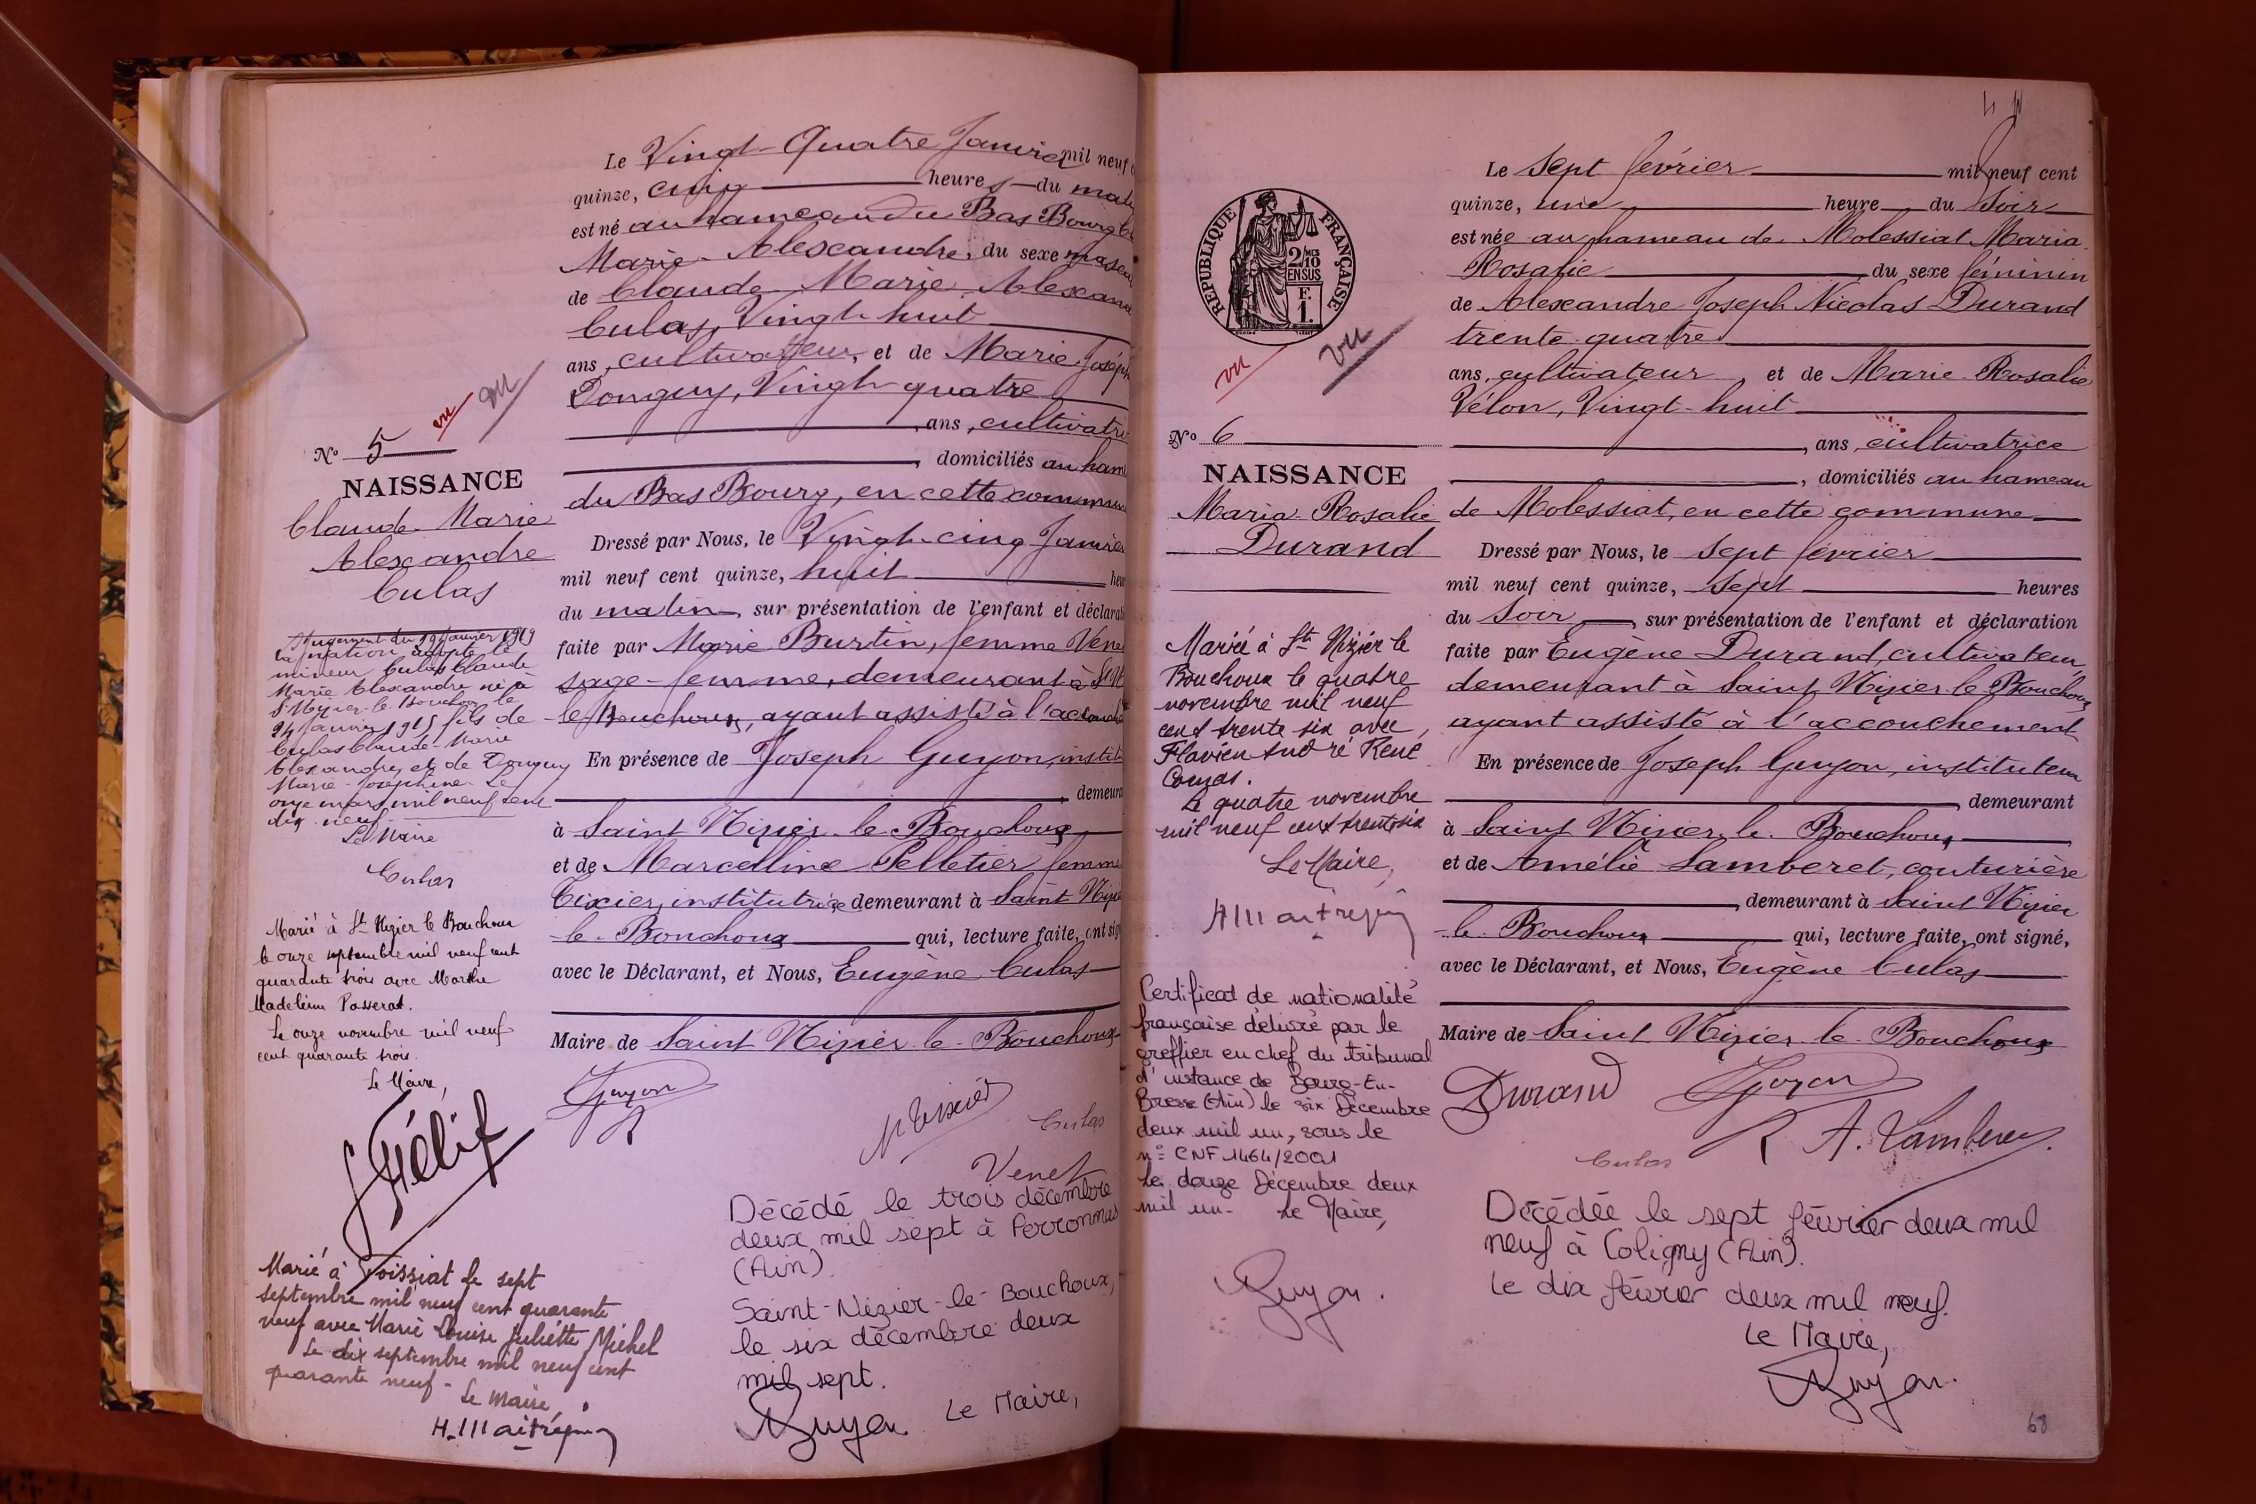 Le Vingt-Quatre Janvier mil neuf
quinze, cinq heures du mat
est né au hameau du Bas Bourg
Marie-Alexandre, du sexe mascu
de Claude Marie Alexan
Culas, Vingt-huit
ans, cultivateur, et de Marie Joséph
Donguy, Vingt-quatre
ans, cultivatri
domiciliés au ham
du Bas Bourg, en cette commun
Dressé par Nous, le Vingt-cinq Janvier
mil neuf cent quinze, huit heu
du matin, sur présentation de l'enfant et déclarati
faite par Marie Burtin, femme Vene
sage-femme, demeurant à St
le Bouchoux, ayant assisté à l'accouche
En présence de Joseph Guyon, instit
demeura
à Saint Nizier le Bouchoux,
et de Marcelline Pelletier femme
Tixier, institutrice demeurant à Saint Nizie
le Bouchoux qui, lecture faite, ont sig
avec le Déclarant, et Nous, Eugène Culas
Maire de Saint Nizier le Bouchoux
Guyon
Culas
Venet
Décédé le trois décembre
deux mil sept à Perronnas
(Ain).
Saint-Nizier-le-Bouchoux,
le six décembre deux
mil sept.
Le Maire,
Guyon
vu
vu
N° 5
NAISSANCE
Claude Marie
Alexandre
Culas
Jugement du 19 Janvier 1919
la nation adopte le
mineur Culas Claude
Marie Alexandre né à
St Nizier-le-Bouchoux le
24 Janvier 1915 fils de
Culas Claude-Marie
Alexandre et de Donguy
Marie-Joséphine. Le
onze mars mil neuf cent
dix-neuf
Le Maire
Culas
Marié à St Nizier le Bouchoux
le onze septembre mil neuf cent
quarante trois avec Marthe
Madeleine Passerat.
Le onze novembre mil neuf
cent quarante trois.
Le Maire,
Félix
Marié à Foissiat le sept
septembre mil neuf cent quarante
neuf avec Marie Louise Juliette Michel
Le dix septembre mil neuf cent
quarante neuf - Le Maire,
RÉPUBLIQUE FRANÇAISE
2/10
EN SUS
F.
1.
vu
vu
N° 6
NAISSANCE
Maria Rosalie
Durand
Mariée à St Nizier le
Bouchoux le quatre
novembre mil neuf
cent trente six avec
Flavien André René
Le quatre novembre
mil neuf cent trente six
Le Maire,
Certificat de nationalité
française délivré par le
greffier en chef du tribunal
d'instance de Bourg-En-
Bresse (Ain) le six Décembre
deux mil un, sous le
n° CNF 1464/2001
Le douze Décembre deux
mil un - Le Maire,
Guyon.
Le Sept février mil neuf cent
quinze, une heure du Soir
est née au hameau de Molessiat Maria
Rosalie, du sexe féminin
de Alexandre Joseph Nicolas Durand
trente quatre
ans, cultivateur et de Marie Rosalie
Vélon, Vingt-huit
ans, cultivatrice
domiciliés au hameau
de Molessiat, en cette commune
Dressé par Nous, le Sept février
mil neuf cent quinze, Sept heures
du Soir, sur présentation de l'enfant et déclaration
faite par Eugène Durand, cultivateur
demeurant à Saint Nizier le Bouchoux
ayant assisté à l'accouchement
En présence de Joseph Guyon, instituteur
demeurant
à Saint Nizier le Bouchoux,
et de Amélie Lamberet, couturière
demeurant à Saint Nizier
le Bouchoux qui, lecture faite, ont signé,
avec le Déclarant, et Nous, Eugène Culas
Maire de Saint Nizier le Bouchoux
Durand
Guyon
A. Lamberet
Culas
Décédée le sept février deux mil
neuf à Coligny (Ain).
Le dix février deux mil neuf.
Le Maire,
Guyon.
68